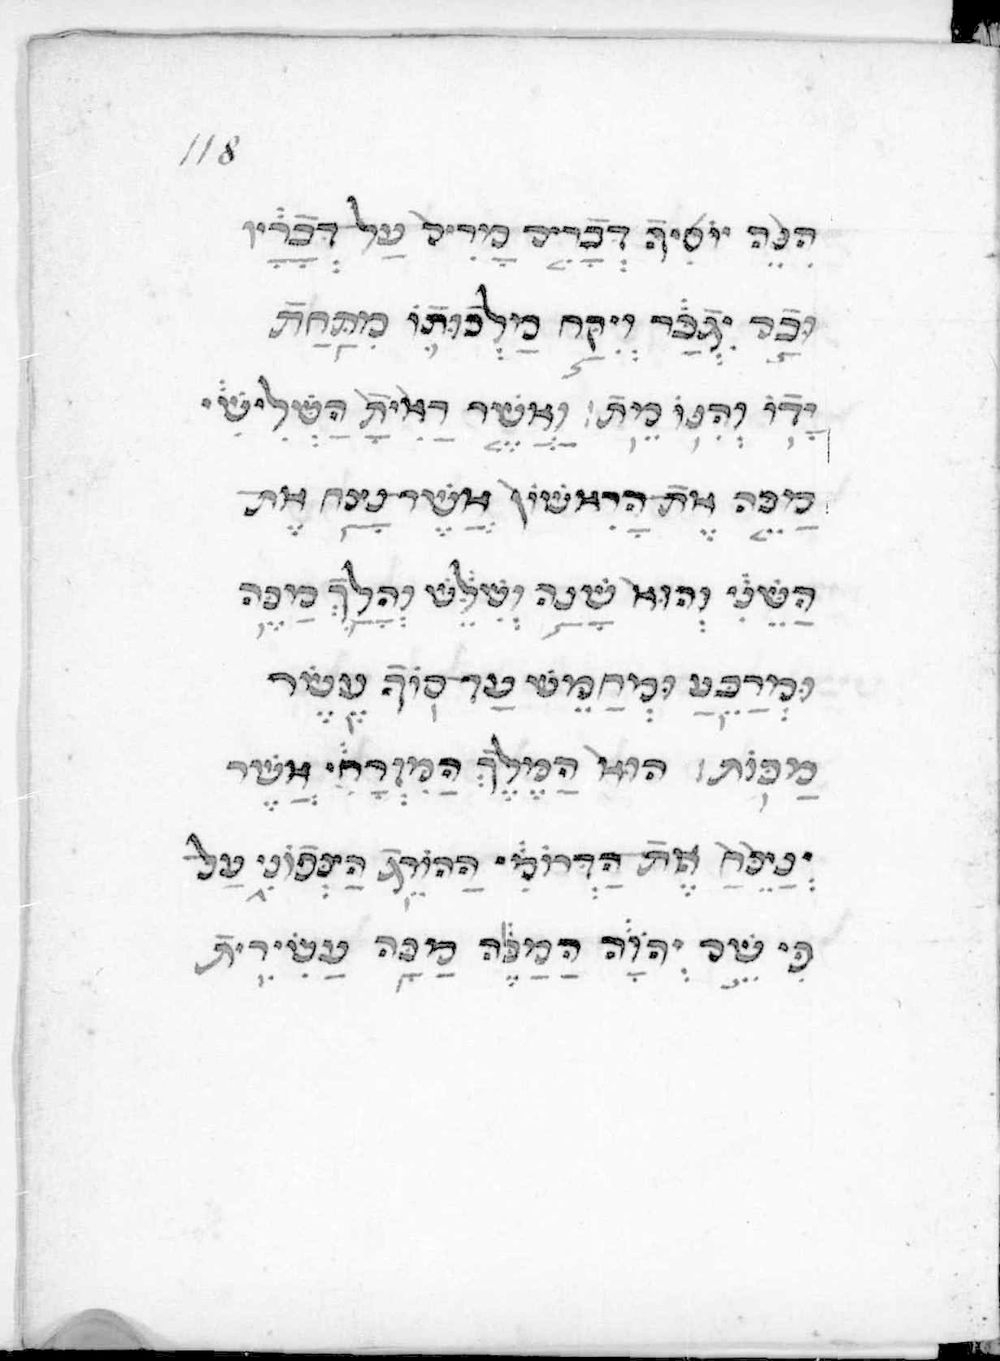 118
הִנֵּה יוֹסִיף דְּבָרִים מָרִים עַל דְּבָרָיו
וּבָם יִגְבַּר וְיִקַח מַלְכוּתוֹ מִתַּחַת
יָדוֹ וְהִנּוֹ מֵת׃ וַאֲשֶׁר רָאִיתָ הַשְּׁלִישִׁי
מַכֶּה אֶת הָרִאשׁוֹן אֲשֶׁר נִצַּח אֶת
הַשֵּׁנִי וְהוּא שָׁנָה וְשִׁלֵּשׁ וְהָלַךְ מַכֶּה
וּמְרַבֵּעַ וּמְחַמֵּשׁ עַד סוֹף עֶשֶׂר
מַכּוֹת׃ הוּא הַמֶּלֶךְ הַמִּזְרָחִי אֲשֶׁר
יְנַצֵּחַ אֶת הַדְּרוֹמִי הַהוֹרֵג הַצְּפוֹנִי עַל
פִּי שֵׁם יְהוָה הַמַּכֶּה מַכָּה עֲשִׂירִית